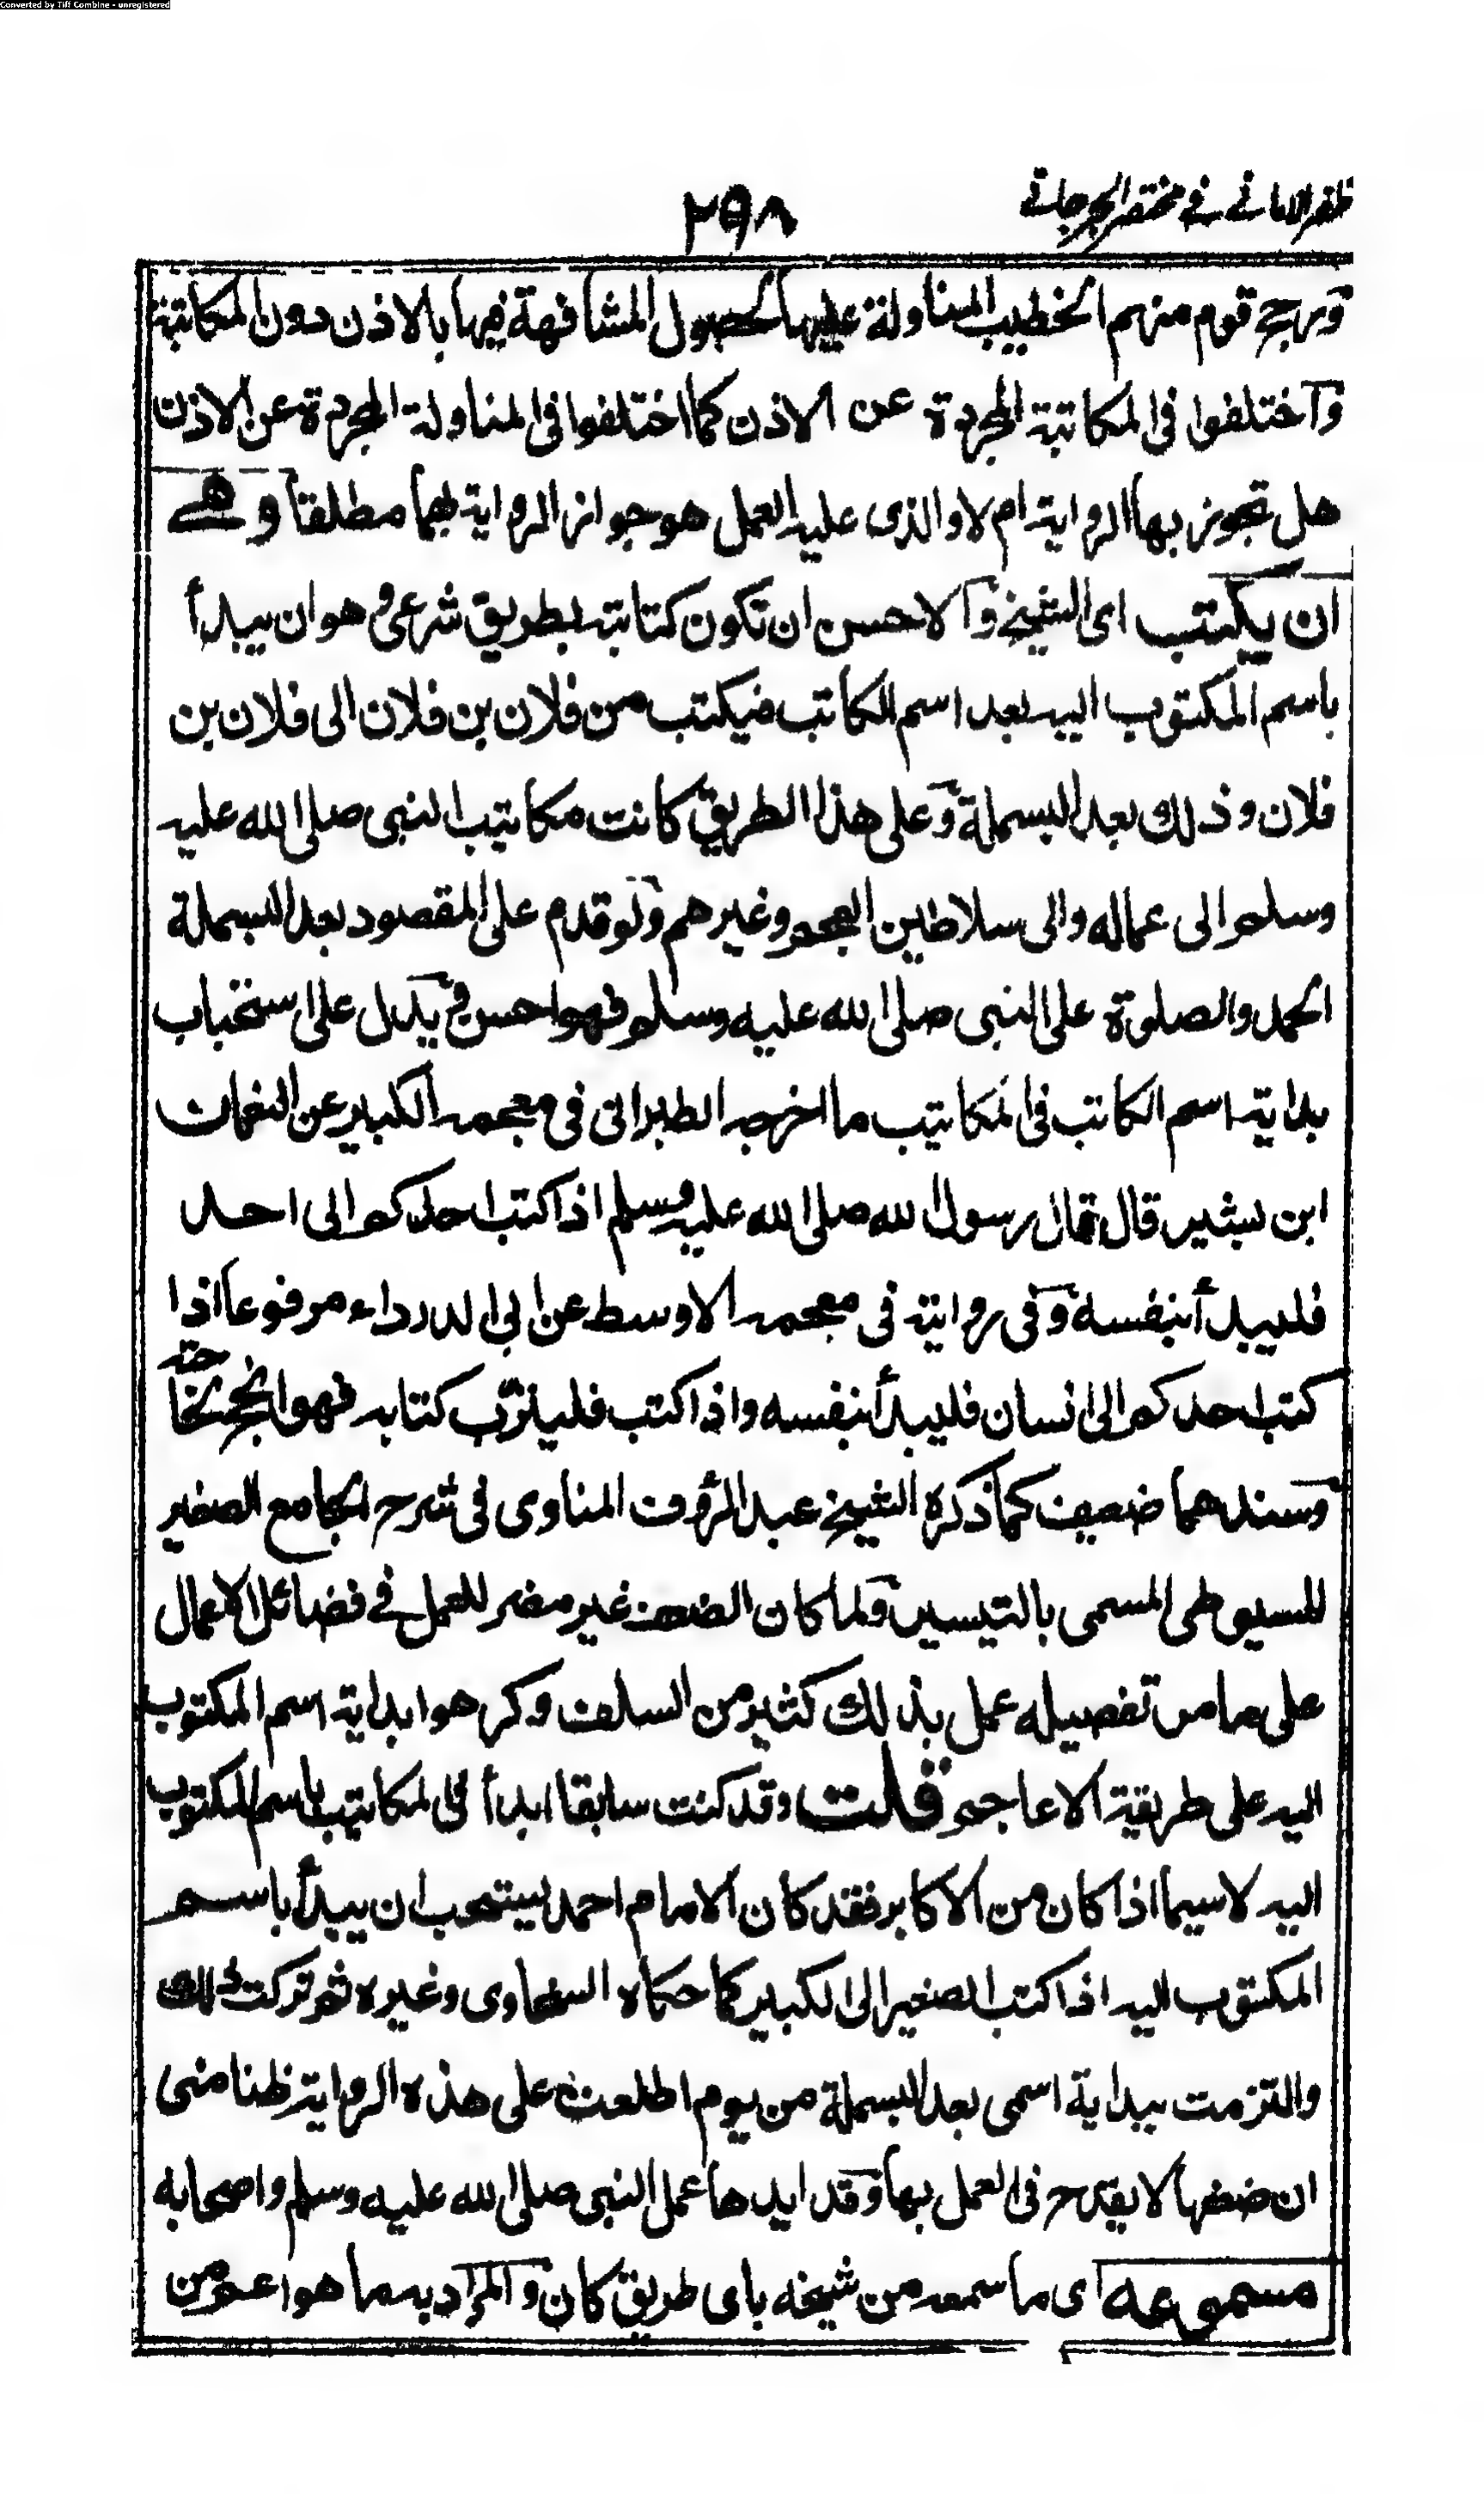 Converted by Tiff Combine - unregistered
ظفر الامانے فے مختصر الجرجانے
۲۹۸
ورجح قوم منهم الخطيب المناولة عليها لحصول المشافهة فيها بالاذن دون المكاتبة
واختلفوا فى المكاتبة المجردة عن الاذن كما اختلفوا فى المناولة المجردة عن الاذن
هل تجوز بها الرواية ام لا والذى عليه العمل هو جواز الرواية بهما مطلقا وهے
ان يكتب اى الشيخ والاحسن ان تكون كتابته بطريق شرعى وهو ان يبدأ
باسم المكتوب اليه بعد اسم الكاتب فيكتب من فلان بن فلان الى فلان بن
فلان وذلك بعد البسملة وعلى هذا الطريق كانت مكاتيب النبى صلى الله عليه
وسلم الى عماله والى سلاطين العجم وغيرهم ولو قدم على المقصود بعد البسملة
الحمد والصلوة على النبى صلى الله عليه وسلم فهو احسن ويدل على استحباب
بداية اسم الكاتب فى المكاتيب ما اخرجه الطبرانى فى معجمه الكبير عن النعمان
ابن بشير قال قال رسول الله صلى الله عليه وسلم اذا كتب احدكم الى احد
فليبدأ بنفسه وفى رواية فى معجمه الاوسط عن ابى الدرداء مرفوعا اذا
كتب احدكم الى انسان فليبدأ بنفسه واذا كتب فليترب كتابه فهو انجح لحاجته
وسندهما ضعيف كما ذكره الشيخ عبد الرؤف المناوى فى شرح الجامع الصغير
للسيوطى المسمى بالتيسير ولما كان الضعف غير مضر للعمل فے فضائل الاعمال
على ما مر تفصيله عمل بذلك كثير من السلف وكرهوا بداية اسم المكتوب
اليه على طريقة الاعاجم قلت وقد كنت سابقا ابدأ فى المكاتيب باسم المكتوب
اليه لا سيما اذا كان من الاكابر فقد كان الامام احمد يستحب ان يبدأ باسم
المكتوب اليه اذا كتب الصغير الى الكبير كما حكاه السخاوى وغيره ثم تركت ذلك
والتزمت ببداية اسمى بعد البسملة من يوم اطلعت على هذه الرواية ظنا منى
ان ضعفها لا يقدح فى العمل بها وقد ايدها عمل النبى صلى الله عليه وسلم واصحابه
مسموعه اى ما سمعه من شيخه باى طريق كان والمراد به ما هو اعم من